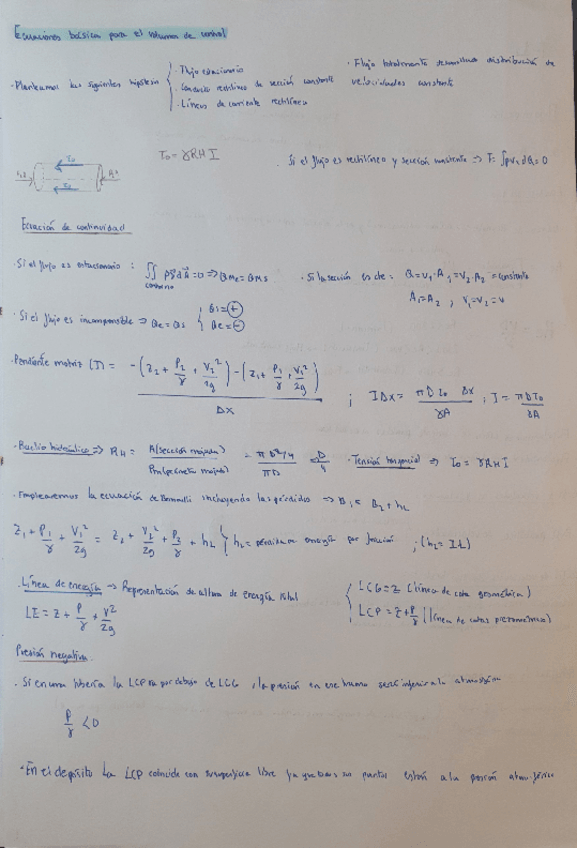 Ecuaciones básicas para el volumen de control
· Planteamos las siguientes hipótesis { · Flujo estacionario
· Conducto rectilíneo de sección constante
· Líneas de corriente rectilíneas
· Flujo totalmente desarrollado distribución de
velocidades constante
τo = γRH I
. Si el flujo es rectilíneo y sección constante ⇒
Ecuación de continuidad
· Si el flujo es estacionario : ∬ ρv⃗dA⃗ = 0 ⇒ Qme = Qms
contorno
· Si la sección es cte = Q = V1·A1 = V2·A2 = constante
A1 = A2 , V1 = V2 = v
· Si el flujo es incompresible ⇒ Qe = Qs { Qs = (+)
Qe = (-)
· Pendiente motriz (I) = -(z2 + P2/γ + V2²/2g) - (z1 + P1/γ + V1²/2g) / Δx ; IΔx = πDτo Δx / γA ; I = πDτo / γA
· Radio hidráulico ⇒ RH = A(sección mojada) / Pm(perímetro mojado) = πD²/4 / πD = D/4 · Tensión tangencial ⇒ τo = γRH I
· Emplearemos la ecuación de Bernoulli incluyendo las pérdidas ⇒ B1 = B2 + hL
z1 + P1/γ + V1²/2g = z2 + V2²/2g + P2/γ + hL } hL = pérdida de energía por fricción ; (hL = I·L)
· Línea de energía ⇒ Representación de altura de energía total
LE = z + P/γ + v²/2g
{ LCG = z (línea de cota geométrica)
LCP = z + P/γ (línea de cotas piezométrica)
Presión negativa
. Si en una tubería la LCP va por debajo de LCG , la presión en ese tramo será inferior a la atmosférica
P/γ < 0
· En el depósito la LCP coincide con su superficie libre ya que todos sus puntos están a la presión atmosférica